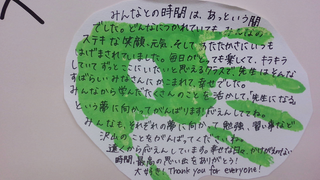 みんなとの時間は、あっという間
でした。どんなにつかれていても、みんなの
ステキな笑顔、元気、そして、あたたかさにいつも
はげまされていました。毎日がとっても楽しくて、キラキラ
していて、ずっとここにいたいと思えるクラスで、先生はそんな
すばらしいみなさんにかこまれて、幸せでした。
みんなから学んだたくさんのことを活かして、先生になる
という夢に向かってがんばります！応えんしてね。
みんなも、それぞれの夢に向かって、勉強、習い事など
沢山のことをがんばってくださいね。
遠くから応えんしています。幸せな日々、かけがえのない
時間、最高の思い出をありがとう！
大好き！Thank you for everyone!